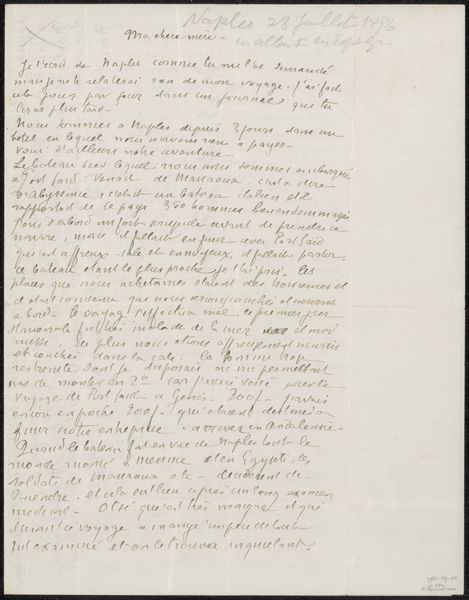 Naples 28 Juillet 1896
en allant en Espagne
Ma chère mère -
Je t'écris de Naples comme tu me l'as demandé
mais je ne te relaterai rien de mon voyage. J'ai fait
cela jour par jour dans un journal que tu
liras plus tard -
Nous sommes à Naples depuis 3 jours dans un
hotel en lequel nous n'avons rien à payer -
Voici d'ailleurs notre aventure -
Le bateau sur lequel nous nous sommes embarqués
à Port Said venait de Massaoua, c'est à dire
d'Abyssinie, c'était un bateau italien et il
rapportait de ce pays 350 hommes
J'eus d'abord un fort scrupule avant de prendre ce
navire, mais il fallait en finir avec Port Said
qui est affreux, sale et ennuyeux, il fallait partir.
Ce bateau étant le plus proche je l'ai pris. les
places que nous achetâmes étaient des troisièmes et
il était convenu que nous serions couchés et nourris
à bord - le voyage s'effectua mal. le premier jour
fut très malade de la mer et moi
aussi. De plus nous étions affreusement nourris
et couchés dans la cale. la somme trop
restreinte dont je disposais ne me permettait
pas de monter en 2e car j'avais versé pour le
voyage de Port Said à Gênes. 200f - j'avais
encore en poche 200f. qui étaient destinés à
pour notre entreprise à arriver en Andalousie -
Quand le bateau fut en vue de Naples tout le
monde monté à Messine et en Egypte, les
soldats de Massaoua etc - décidèrent de
descendre, et cela eut lieu après un long examen
médical - Otsé qui est très maigre et qui
durant ce voyage a mangé un peu de tout
fut examiné et on le trouva inquiétant.